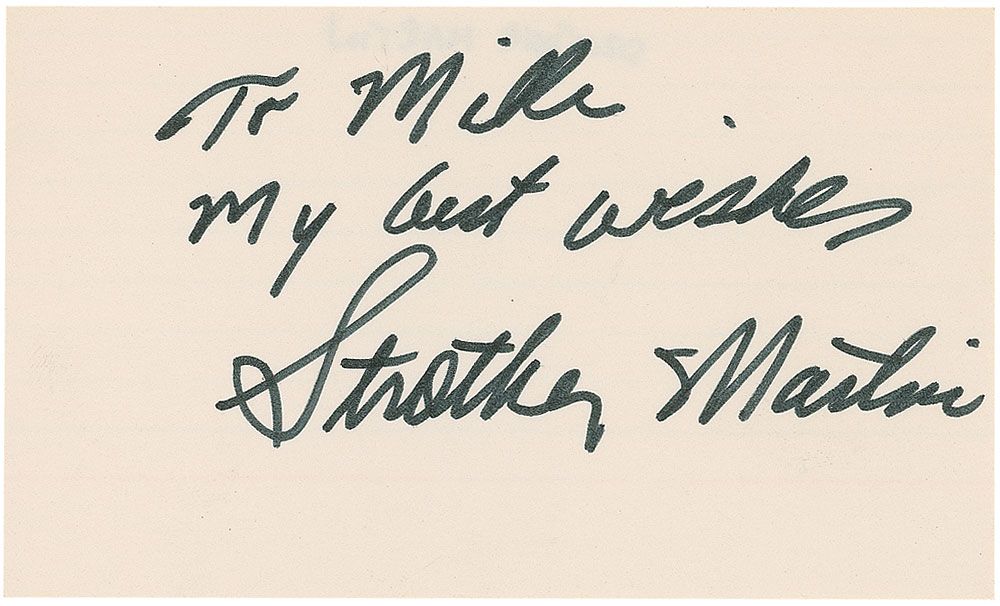 To Mike
My best wishes
Strother Martin